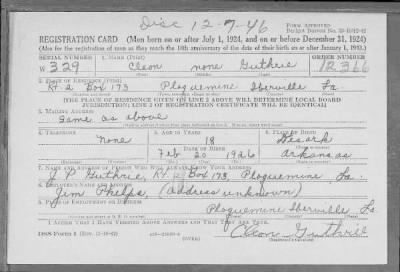 Disc 12-7-46
FORM APPROVED
REGISTRATION CARD (Men born on or after July 1, 1924, and on or before December 31, 1924)
(Also for the registration of men as they reach the 18th anniversary of the date of their birth on or after January 1, 1925.)
SERIAL NUMBER 1. NAME (Print) ORDER NUMBER
329 Cleon none Guthrie 12366
2. PLACE OF RESIDENCE (Print)
Rt. 2 Box 173 Plaquemine Iberville La.
[THE PLACE OF RESIDENCE GIVEN ON LINE 2 ABOVE WILL DETERMINE LOCAL BOARD
JURISDICTION; LINE 2 OF REGISTRATION CERTIFICATE WILL BE IDENTICAL]
3. MAILING ADDRESS
Same as above
4. TELEPHONE 5. AGE IN YEARS 6. PLACE OF BIRTH
none 18 Desark
DATE OF BIRTH
Feb 20 1926 Arkansas
7. NAME AND ADDRESS OF PERSON WHO WILL ALWAYS KNOW YOUR ADDRESS
J. P. Guthrie, Rt. 2 Box 173, Plaquemine, La.
8. EMPLOYER'S NAME AND ADDRESS
Jim Phelps, (address unknown)
9. PLACE OF EMPLOYMENT OR BUSINESS
Plaquemine Iberville La
I AFFIRM THAT I HAVE VERIFIED ABOVE ANSWERS AND THAT THEY ARE TRUE.
DSS Form 1 (OVER) Cleon Guthrie